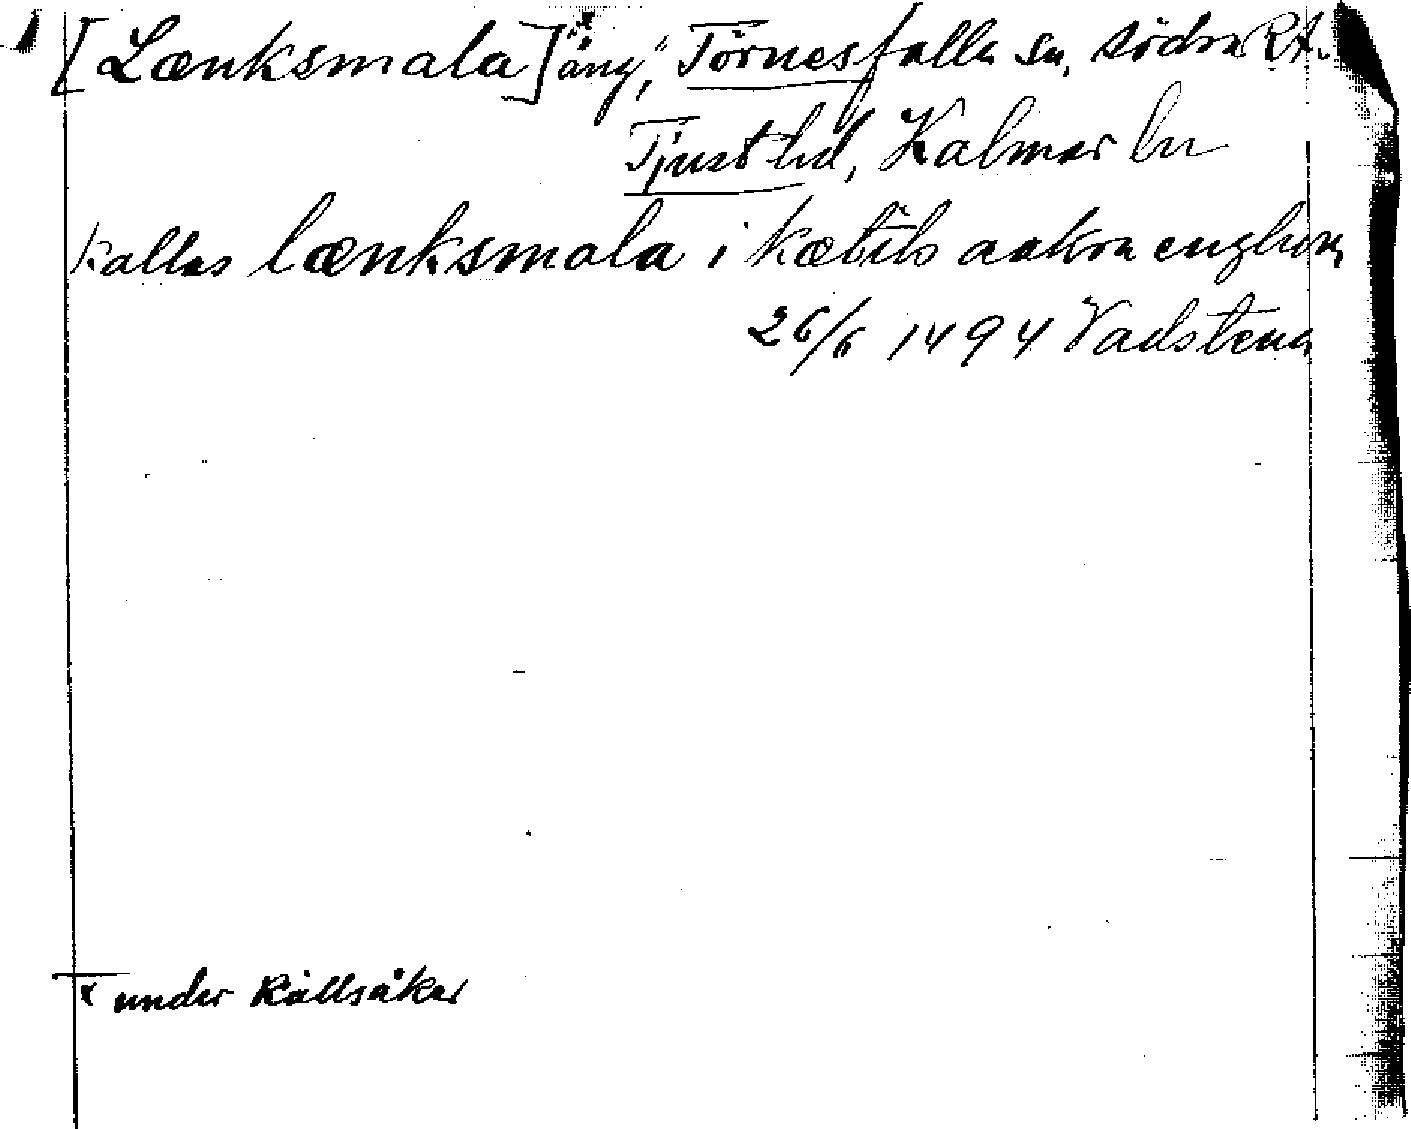 [Lænksmala] äng,ˣ Törnesfalla sn, södra RA.
Tjust hd, Kalmar ln
kallas lænksmala i kætils aakra
26/6 1494 Vadstena
x under Källsåker